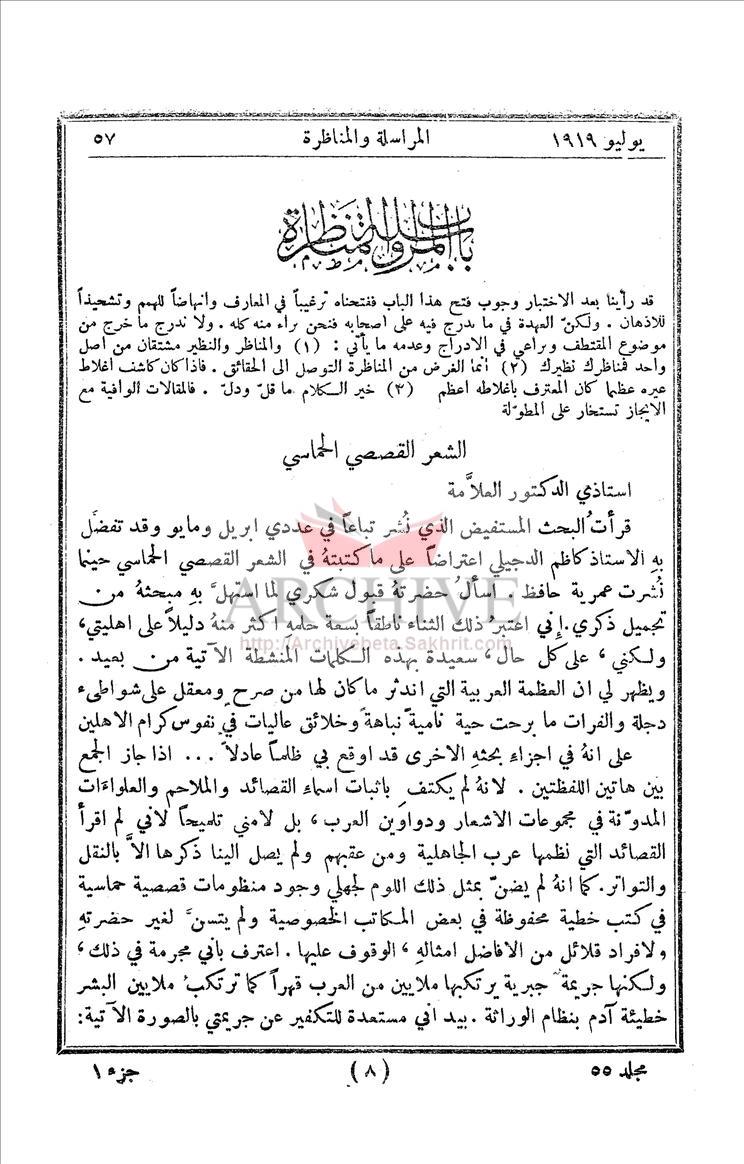 يوليو ١٩١٩ المراسلة والمناظرة ٥٧
باب المراسلة والمناظرة
قد رأينا بعد الاختبار وجوب فتح هذا الباب ففتحناه ترغيباً في المعارف وانهاضاً للهمم وتشحيذاً
للاذهان . ولكنّ العهدة في ما يدرج فيه على اصحابه فنحن براء منه كله . ولا ندرج ما خرج عن
موضوع المقتطف ونراعي في الادراج وعدمه ما يأتي : (١) والمناظر والنظير مشتقان من اصل
واحد فمناظرك نظيرك (٢) أنما الغرض من المناظرة التوصل الى الحقائق . فاذا كان كاشف اغلاط
غيره عظيما كان المعترف باغلاطه اعظم (٣) خير الكلام ما قلّ ودلّ . فالمقالات الوافية مع
الايجاز تستخار على المطوّلة
الشعر القصصي الحماسي
استاذي الدكتور العلاَّمة
قرأتُ البحث المستفيض الذي نُشر تباعاً في عددي ابريل ومايو وقد تفضَّل
بهِ الاستاذ كاظم الدجيلي اعتراضاً على ما كتبتهُ في الشعر القصصي الحماسي حينما
نُشرت عمرية حافظ . اسألُ حضرتهُ قبول شكري لما استهلَّ بهِ مبحثهُ من
تجميل ذكري. إني اعتبرُ ذلك الثناء ناطقاً بسعة حلمهِ اكثر منهُ دليلاً على اهليتي،
ولكني، على كل حال، سعيدة بهذه الكلمات المنشطة الآتية من بعيد .
ويظهر لي ان العظمة العربية التي اندثر ما كان لها من صرح ومعقل على شواطىء
دجلة والفرات ما برحت حية نامية نباهة وخلائق عاليات في نفوس كرام الاهلين
على انهُ في اجزاءِ بحثهِ الاخرى قد اوقع بي ظلماً عادلاً ... اذا جاز الجمع
بين هاتين اللفظتين . لانهُ لم يكتفِ باثبات اسماء القصائد والملاحم والعلواءَات
المدوّنة في مجموعات الاشعار ودواوين العرب، بل لامني تلميحاً لاني لم اقرأ
القصائد التي نظمها عرب الجاهلية ومن عقبهم ولم يصل الينا ذكرها الاَّ بالنقل
والتواتر. كما انهُ لم يضنّ بمثل ذلك اللوم لجهلي وجود منظومات قصصية حماسية
في كتب خطية محفوظة في بعض المكاتب الخصوصية ولم يتسنَّ لغير حضرتهِ
ولافراد قلائل من الافاضل امثاله، الوقوف عليها . اعترف باني مجرمة في ذلك،
ولكنها جريمة جبرية يرتكبها ملايين من العرب قهراً كما ترتكبُ ملايين البشر
خطيئة آدم بنظام الوراثة . بيد اني مستعدة للتكفير عن جريمتي بالصورة الآتية:
مجلد ٥٥ (٨) جزء ١
ARCHIVE
http://Archivebeta.Sakhrit.com